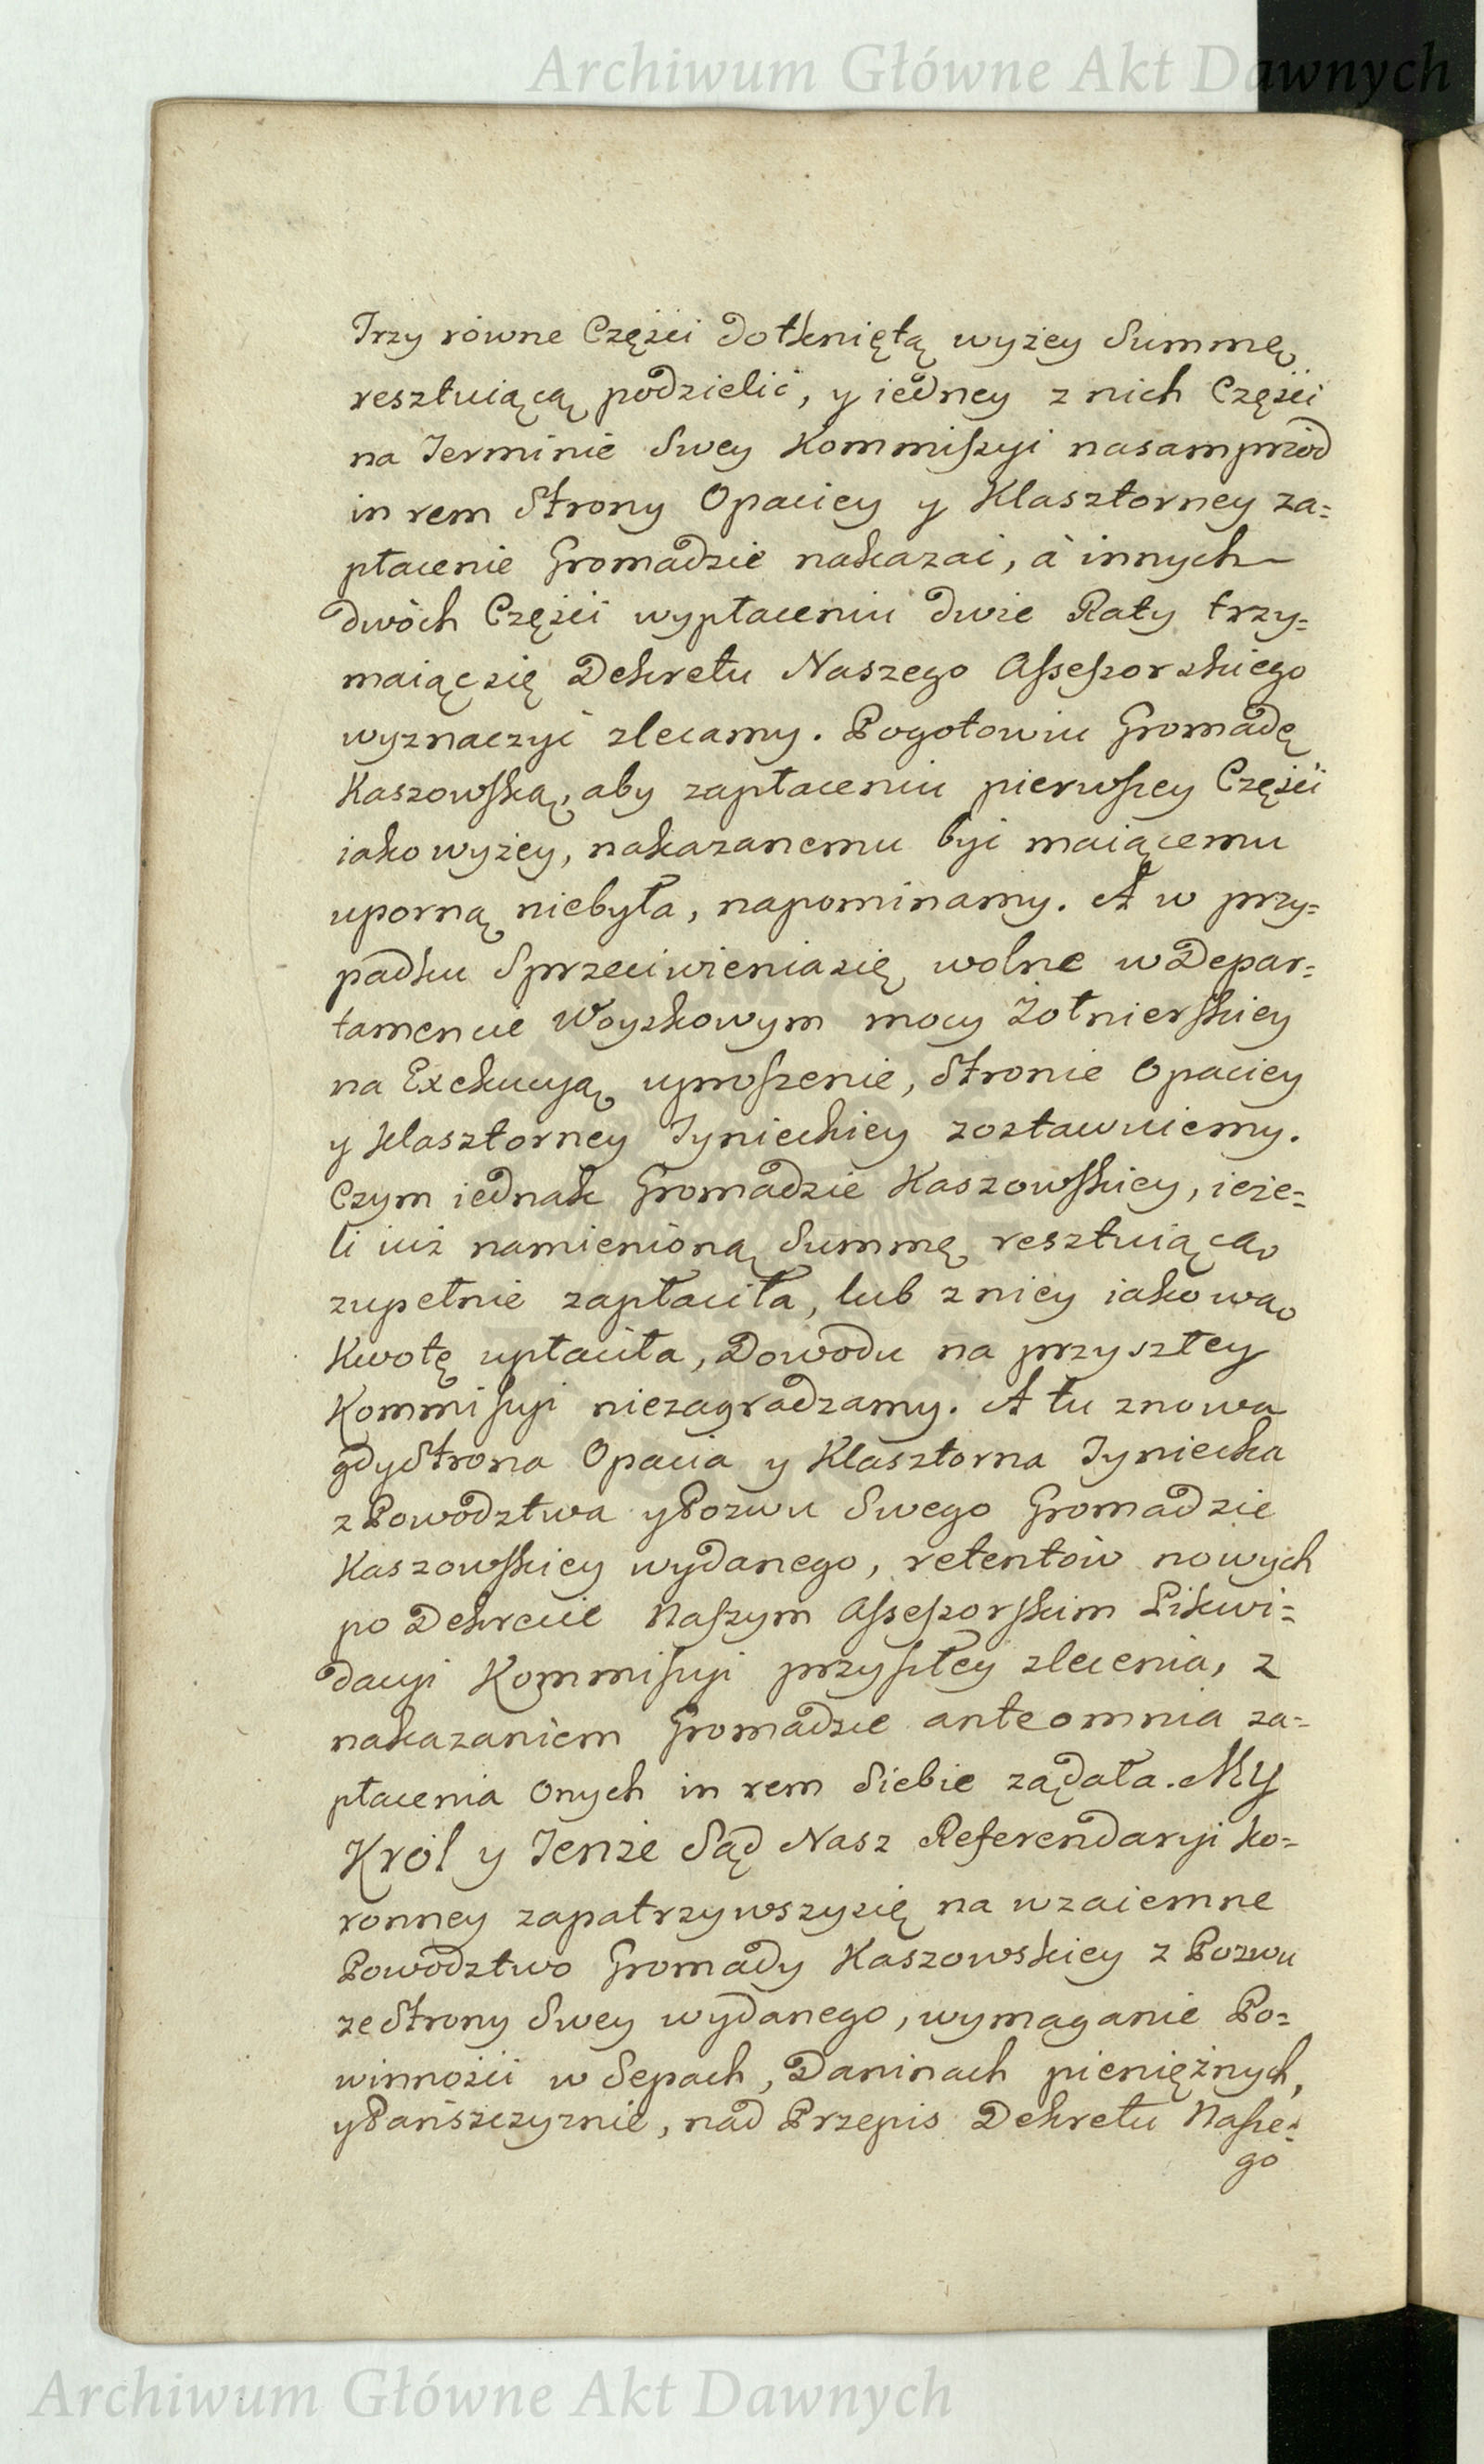 Archiwum Główne Akt Dawnych
Trzy równe Części dotkniętą wyżey Summę
resztuiącą podzielić, y iedney z nich Części
na Terminie Swey Kommiszyi nasamprzód
in rem Strony Opaciey y Klasztorney za=
płacenie Gromadzie nakazać, à innych
dwóch Części wypłaceniu dwie Raty trzy=
maiąc się Dekretu Naszego Assessorskiego
wyznaczyć zlecamy. Pogotowiu Gromadę
Kaszowską, aby zapłaceniu pierwszey Części
iako wyżey, nakazanemu być maiącemu
uporną niebyła, napominamy. A w przy=
padku Sprzeciwienia się wolne w Depar=
tamencie Woyskowym mocy Żołnierskiey
na Exekucyą uproszenie, Stronie Opaciey
y Klasztorney Tynieckiey zostawuiemy.
Czym iednak Gromadzie Kaszowskiey, ieże=
li iuż namienioną Summę resztuiącą
zupełnie zapłaciła, lub z niey iakową
Kwotę upłaciła, Dowodu na przyszłey
Kommissyi niezagradzamy. A tu znowa
gdy Strona Opacia y Klasztorna Tyniecka
z Powodztwa y Pozwu Swego Gromadzie
Kaszowskiey wydanego, retentów nowych
po Dekrecie Naszym Assessorskim Likwi=
dacyi Kommissyi przyszłey zlecenia, z
nakazaniem Gromadzie ante omnia za=
płacenia Onych in rem Siebie żądała. MY
Król y Tenże Sąd Nasz Referendaryi Ko=
ronney zapatrzywszy się na wzaiemne
Powodztwo Gromady Kaszowskiey z Pozwu
ze Strony Swey wydanego, wymaganie Po=
winności w Sepach, Daninach pieniężnych,
y Pańszczyznie, nad Przepis Dekretu Nasze=
go
Archiwum Główne Akt Dawnych